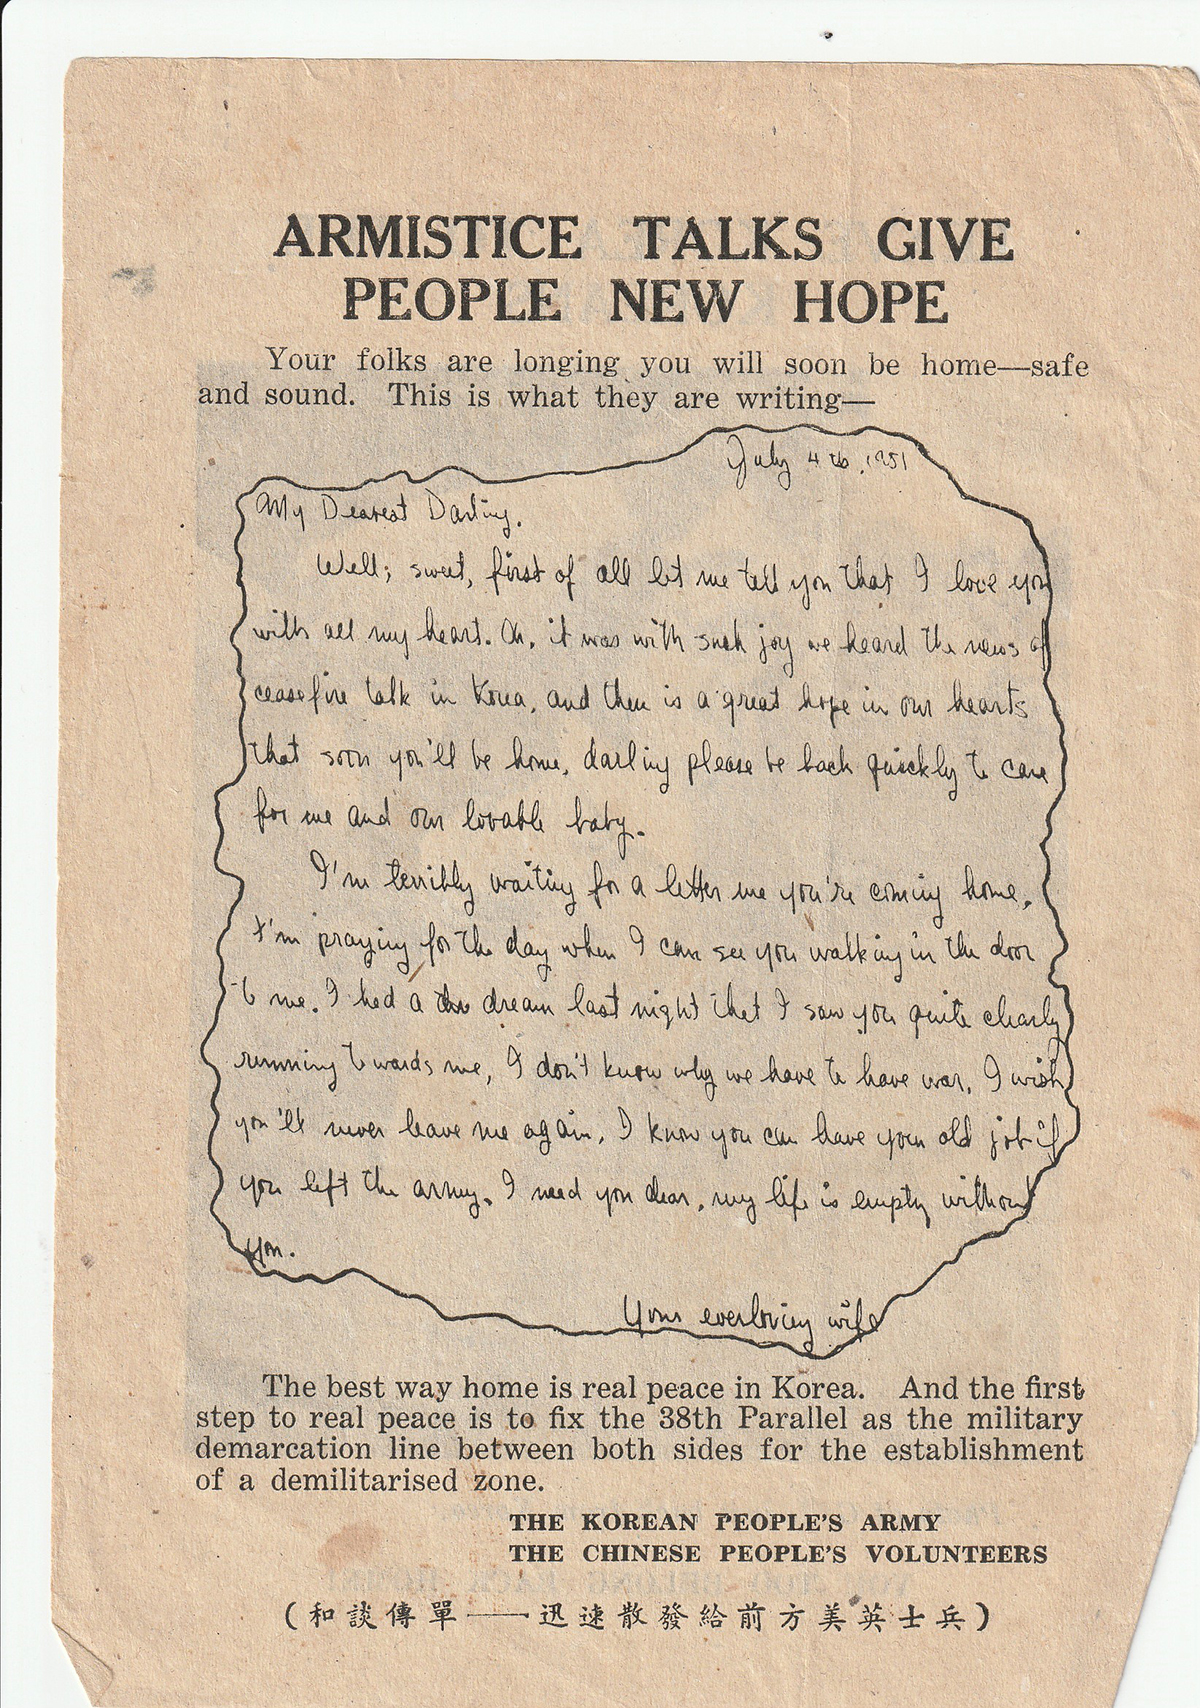 ARMISTICE TALKS GIVE
PEOPLE NEW HOPE
Your folks are longing you will soon be home—safe
and sound. This is what they are writing—
July 4th, 1951
My Dearest Darling.
Well; sweet, first of all let me tell you that I love you
with all my heart. Oh, it was with such joy we heard the news of
ceasefire talk in Korea, and then is a great hope in our hearts
that soon you'll be home, darling please be back quickly to care
for me and our lovable baby.
I'm terribly waiting for a letter me you're coming home.
I'm praying for the day when I can see you walking in the door
to me. I had a dream last night that I saw you quite clearly
running towards me, I don't know why we have to have war. I wish
you'll never leave me again, I know you can have your old job if
you left the army. I need you dear, my life is empty without
you.
Your everloving wife
The best way home is real peace in Korea. And the first
step to real peace is to fix the 38th Parallel as the military
demarcation line between both sides for the establishment
of a demilitarised zone.
THE KOREAN PEOPLE'S ARMY
THE CHINESE PEOPLE'S VOLUNTEERS
(和談傳單——迅速散發給前方美英士兵)